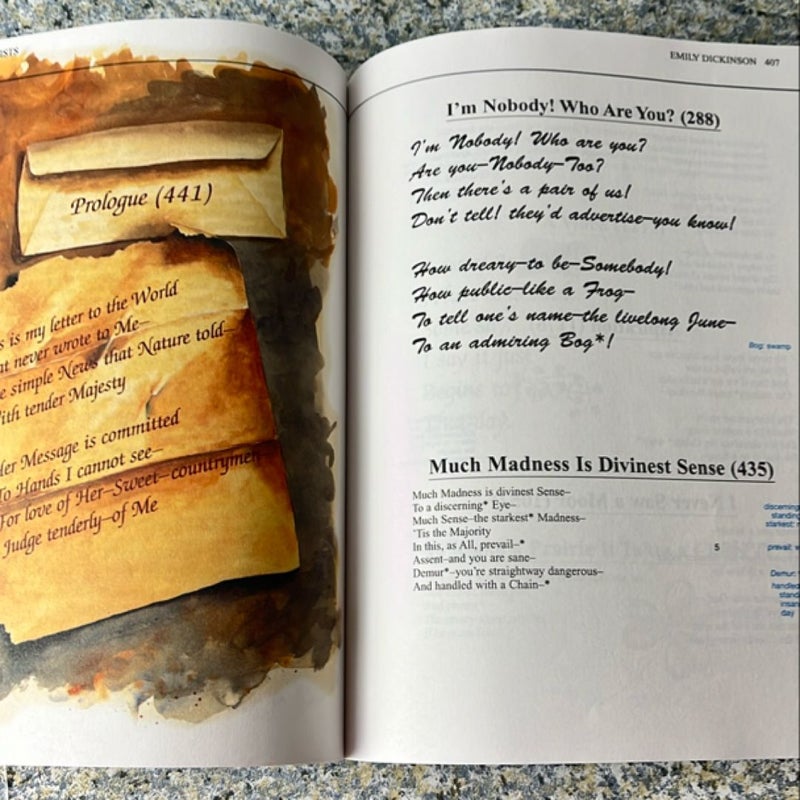 Prologue (441)
is my letter to the World
never wrote to Me–
simple News that Nature told–
tender Majesty
Message is committed
Hands I cannot see–
For love of Her–Sweet–countrymen–
Judge tenderly–of Me
EMILY DICKINSON 407
I'm Nobody! Who Are You? (288)
I'm Nobody! Who are you?
Are you–Nobody–Too?
Then there's a pair of us!
Don't tell! they'd advertise–you know!
How dreary–to be–Somebody!
How public–like a Frog–
To tell one's name–the livelong June–
To an admiring Bog*!
Bog: swamp
Much Madness Is Divinest Sense (435)
Much Madness is divinest Sense–
To a discerning* Eye–
Much Sense–the starkest* Madness–
'Tis the Majority
In this, as All, prevail–* 5
Assent–and you are sane–
Demur*–you're straightway dangerous–
And handled with a Chain–*
discerning
standing
starkest:
prevail:
Demur:
handled
day